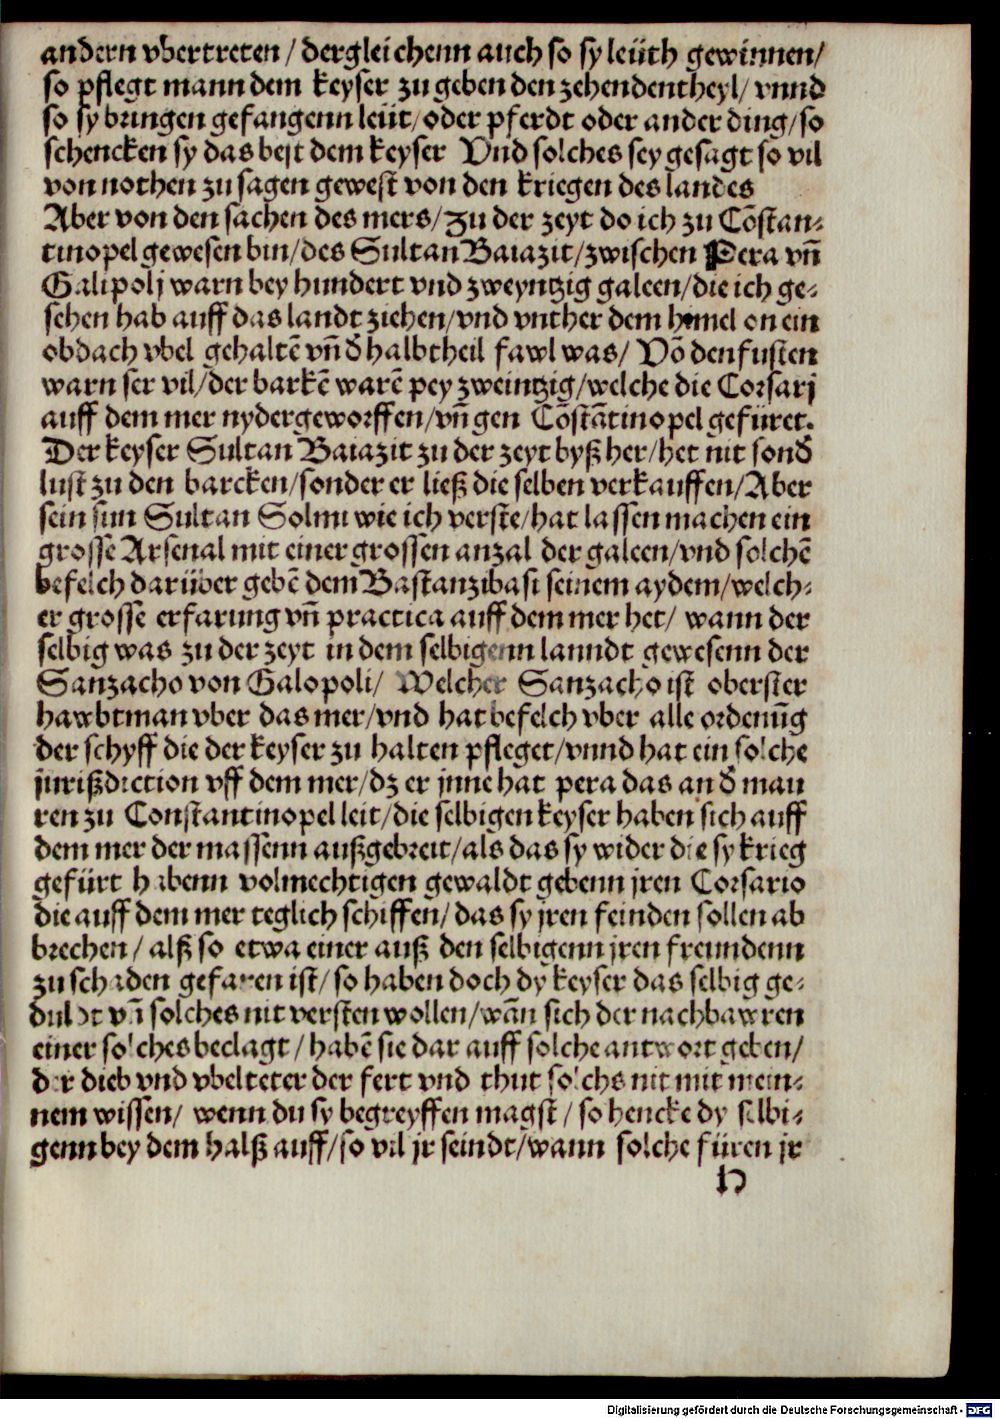 andern vbertreten / dergleichenn auch so sy leüth gewinnen/
so pflegt mann dem keyser zu geben den zehendentheyl/ vnnd
so sy bringen gefangenn leüt/oder pferdt oder ander ding/so
schencken sy das best dem keyser Vnd solches sey gesagt so vil
von nothen zu sagen gewest von den kriegen des landes
Aber von den sachen des mers/Zu der zeyt do ich zu Cōstan⸗
tinopel gewesen bin/des Sultan Baiazit/zwischen Pera vñ
Galipolj warn bey hundert vnd zweyntzig galeen/die ich ge⸗
sehen hab auff das landt ziehen/vnd vnther dem himel on ein
obdach vbel gehaltē vñ d̄ halbtheil fawl was/ Vō den fusten
warn ser vil/der barkē warē pey zweintzig/welche die Corsarj
auff dem mer nydergeworffen/vñ gen Cōstātinopel gefüret.
Der keyser Sultan Baiazit zu der zeyt byß her/het nit sond̄
lust zu den barcken/sonder er ließ die selben verkauffen/Aber
sein sun Sultan Solmi wie ich verste/hat lassen machen ein
grosse Arsenal mit einer grossen anzal der galeen/vnd solchē
befelch darüber gebē dem Bastanzibasi seinem aydem/welch⸗
er grosse erfarung vñ practica auff dem mer het/ wann der
selbig was zu der zeyt in dem selbigenn lanndt gewesenn der
Sanzacho von Galopoli/ Welcher Sanzacho ist oberster
hawbtman vber das mer/vnd hat befelch vber alle ordenūg
der schyff die der keyser zu halten pfleget/vnnd hat ein solche
jurißdiction vff dem mer/dz er jnne hat pera das an d̄ mau
ren zu Constantinopel leit/die selbigen keyser haben sich auff
dem mer der massenn außgebreit/als das sy wider die sy krieg
gefürt habenn volmechtigen gewaldt gebenn jren Corsario
die auff dem mer teglich schiffen/das sy jren feinden sollen ab
brechen/ alß so etwa einer auß den selbigenn jren freundenn
zu schaden gefaren ist/so haben doch dy keyser das selbig ge⸗
duldt vñ solches nit versten wollen/wān sich der nachbawren
einer solches beclagt/habē sie dar auff solche antwort geben/
der dieb vnd vbelteter der fert vnd thut solchs nit mit mein⸗
nem wissen/ wenn du sy begreyffen magst/so hencke dy selbi⸗
genn bey dem halß auff/so vil jr seindt/wann solche füren jr
Digitalisierung gefördert durch die Deutsche Forschungsgemeinschaft - DFG